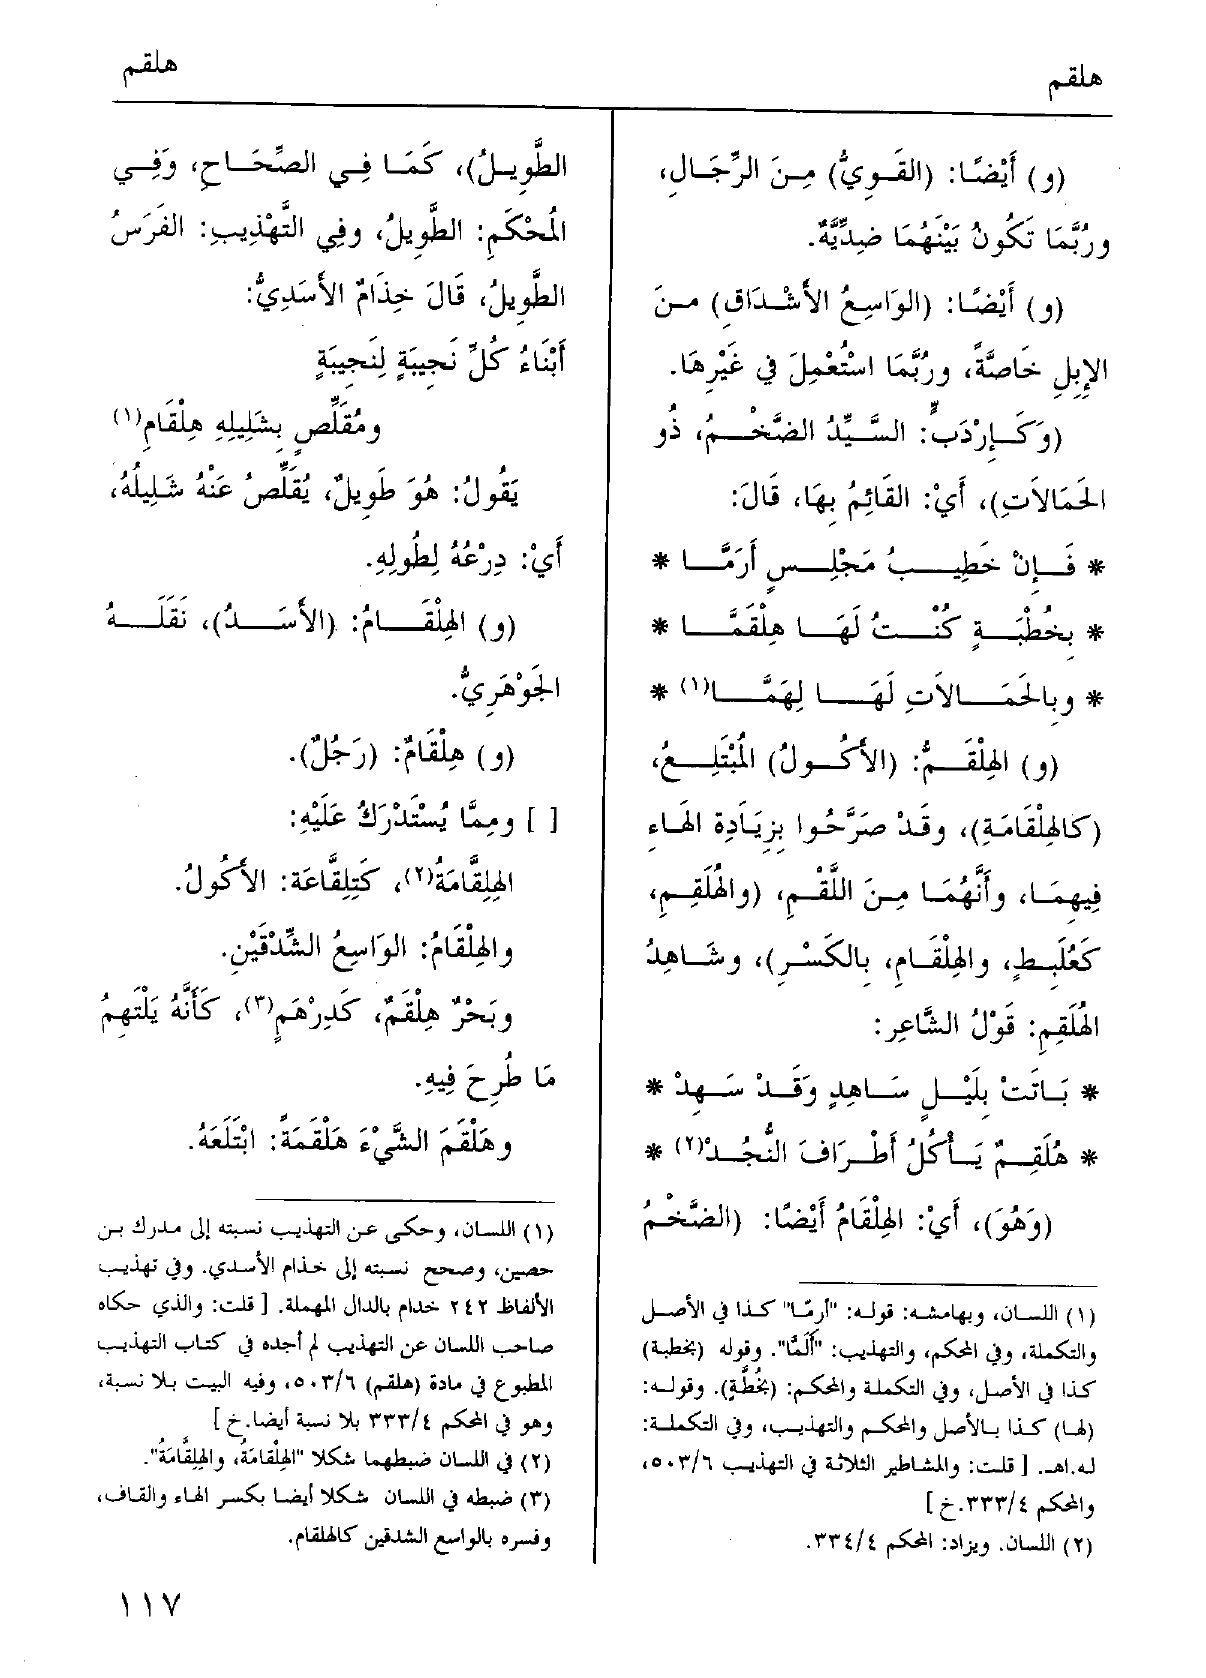 هلقم
هلقم
(و) أَيْضًا: (القَوِيُّ) مِنَ الرِّجَالِ،
ورُبَّمَا تَكُونُ بَيْنَهُمَا ضِدِّيَّةٌ.
(و) أَيْضًا: (الوَاسِعُ الأَشْدَاقِ) مِنَ
الإِبِلِ خَاصَّةً، ورُبَّمَا اسْتُعْمِلَ فِي غَيْرِهَا.
(وَكَإِرْدَبٍّ: السَّيِّدُ الضَّخْمُ، ذُو
الحَمَالَاتِ)، أَيْ: القَائِمُ بِهَا، قَالَ:
* فَإِنْ خَطِيبُ مَجْلِسٍ أَرَمَّا *
* بِخُطْبَةٍ كُنْتُ لَهَا هِلْقَمَّا *
* وبِالحَمَالَاتِ لَهَا لِهَمَّا(١) *
(و) الهِلْقَمُّ: (الأَكُولُ) المُبْتَلِعُ،
(كَالهِلْقَامَةِ)، وقَدْ صَرَّحُوا بِزِيَادِةِ الهَاءِ
فِيهِمَا، وأَنَّهُمَا مِنَ اللَّقْمِ، (والهُلَقِمِ،
كَعُلَبِطٍ، والهِلْقَامِ، بِالكَسْرِ)، وشَاهِدُ
الهُلَقِمِ: قَوْلُ الشَّاعِرِ:
* بَاتَتْ بِلَيْلٍ سَاهِدٍ وَقَدْ سَهِدْ *
* هُلَقِمٌ يَأْكُلُ أَطْرَافَ النُّجُدْ(٢) *
(وَهُوَ)، أَيْ: الهِلْقَامُ أَيْضًا: (الضَّخْمُ
(١) اللسان، وبهامشه: قوله: "أرمّا" كذا في الأصل
والتكملة، وفي المحكم، والتهذيب: "أَلَمَّا". وقوله (بخطبة)
كذا في الأصل، وفي التكملة والمحكم: (بخُطَّةٍ). وقوله:
(لها) كذا بالأصل والمحكم والتهذيب، وفي التكملة:
له.اهـ. [ قلت: والمشاطير الثلاثة في التهذيب ٥٠٣/٦،
والمحكم ٣٣٣/٤.خ ]
(٢) اللسان. ويزاد: المحكم ٣٣٤/٤.
الطَّوِيلُ)، كَمَا فِي الصِّحَاحِ، وَفِي
المُحْكَمِ: الطَّوِيلُ، وفِي التَّهْذِيبِ: الفَرَسُ
الطَّوِيلُ، قَالَ خِذَامٌ الأَسَدِيُّ:
أَبْنَاءُ كُلِّ نَجِيبَةٍ لِنَجِيبَةٍ
ومُقَلِّصٍ بِشَلِيلِهِ هِلْقَامِ(١)
يَقُولُ: هُوَ طَوِيلٌ، يُقَلِّصُ عَنْهُ شَلِيلُهُ،
أَيْ: دِرْعُهُ لِطُولِهِ.
(و) الهِلْقَامُ: (الأَسَدُ)، نَقَلَهُ
الجَوْهَرِيُّ.
(و) هِلْقَامٌ: (رَجُلٌ).
[ ] ومِمَّا يُسْتَدْرَكُ عَلَيْهِ:
الهِلِقَّامَةُ(٢)، كَتِلِقَّاعَة: الأَكُولُ.
والهِلْقَامُ: الوَاسِعُ الشِّدْقَيْنِ.
وبَحْرٌ هِلْقَمٌ، كَدِرْهَمٍ(٣)، كَأَنَّهُ يَلْتَهِمُ
مَا طُرِحَ فِيهِ.
وهَلْقَمَ الشَّيْءَ هَلْقَمَةً: ابْتَلَعَهُ.
(١) اللسان، وحكى عن التهذيب نسبته إلى مدرك بن
حصين، وصحح نسبته إلى خذام الأسدي. وفي تهذيب
الألفاظ ٢٤٢ خدام بالدال المهملة. [ قلت: والذي حكاه
صاحب اللسان عن التهذيب لم أجده في كتاب التهذيب
المطبوع في مادة (هلقم) ٥٠٣/٦، وفيه البيت بلا نسبة،
وهو في المحكم ٣٣٣/٤ بلا نسبة أيضا.خ ]
(٢) في اللسان ضبطهما شكلا "الهِلْقامَةُ، والهِلِقَّامَةُ".
(٣) ضبطه في اللسان شكلا أيضا بكسر الهاء والقاف،
وفسره بالواسع الشدقين كالهلقام.
١١٧